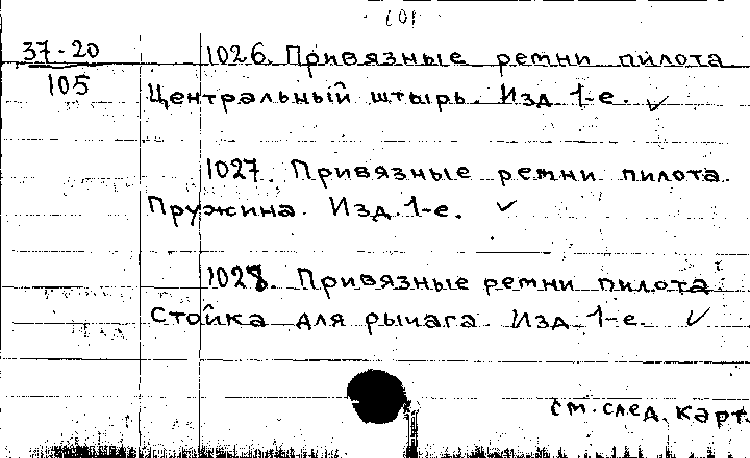 101
37-20 1026. Привязные ремни пилота
105 Центральный штырь. Изд 1-е. ✓
1027. Привязные ремни пилота.
Пружина. Изд. 1-е. ✓
1028. Привязные ремни пилота
Стойка для рычага. Изд 1-е. ✓
см. след. карт.